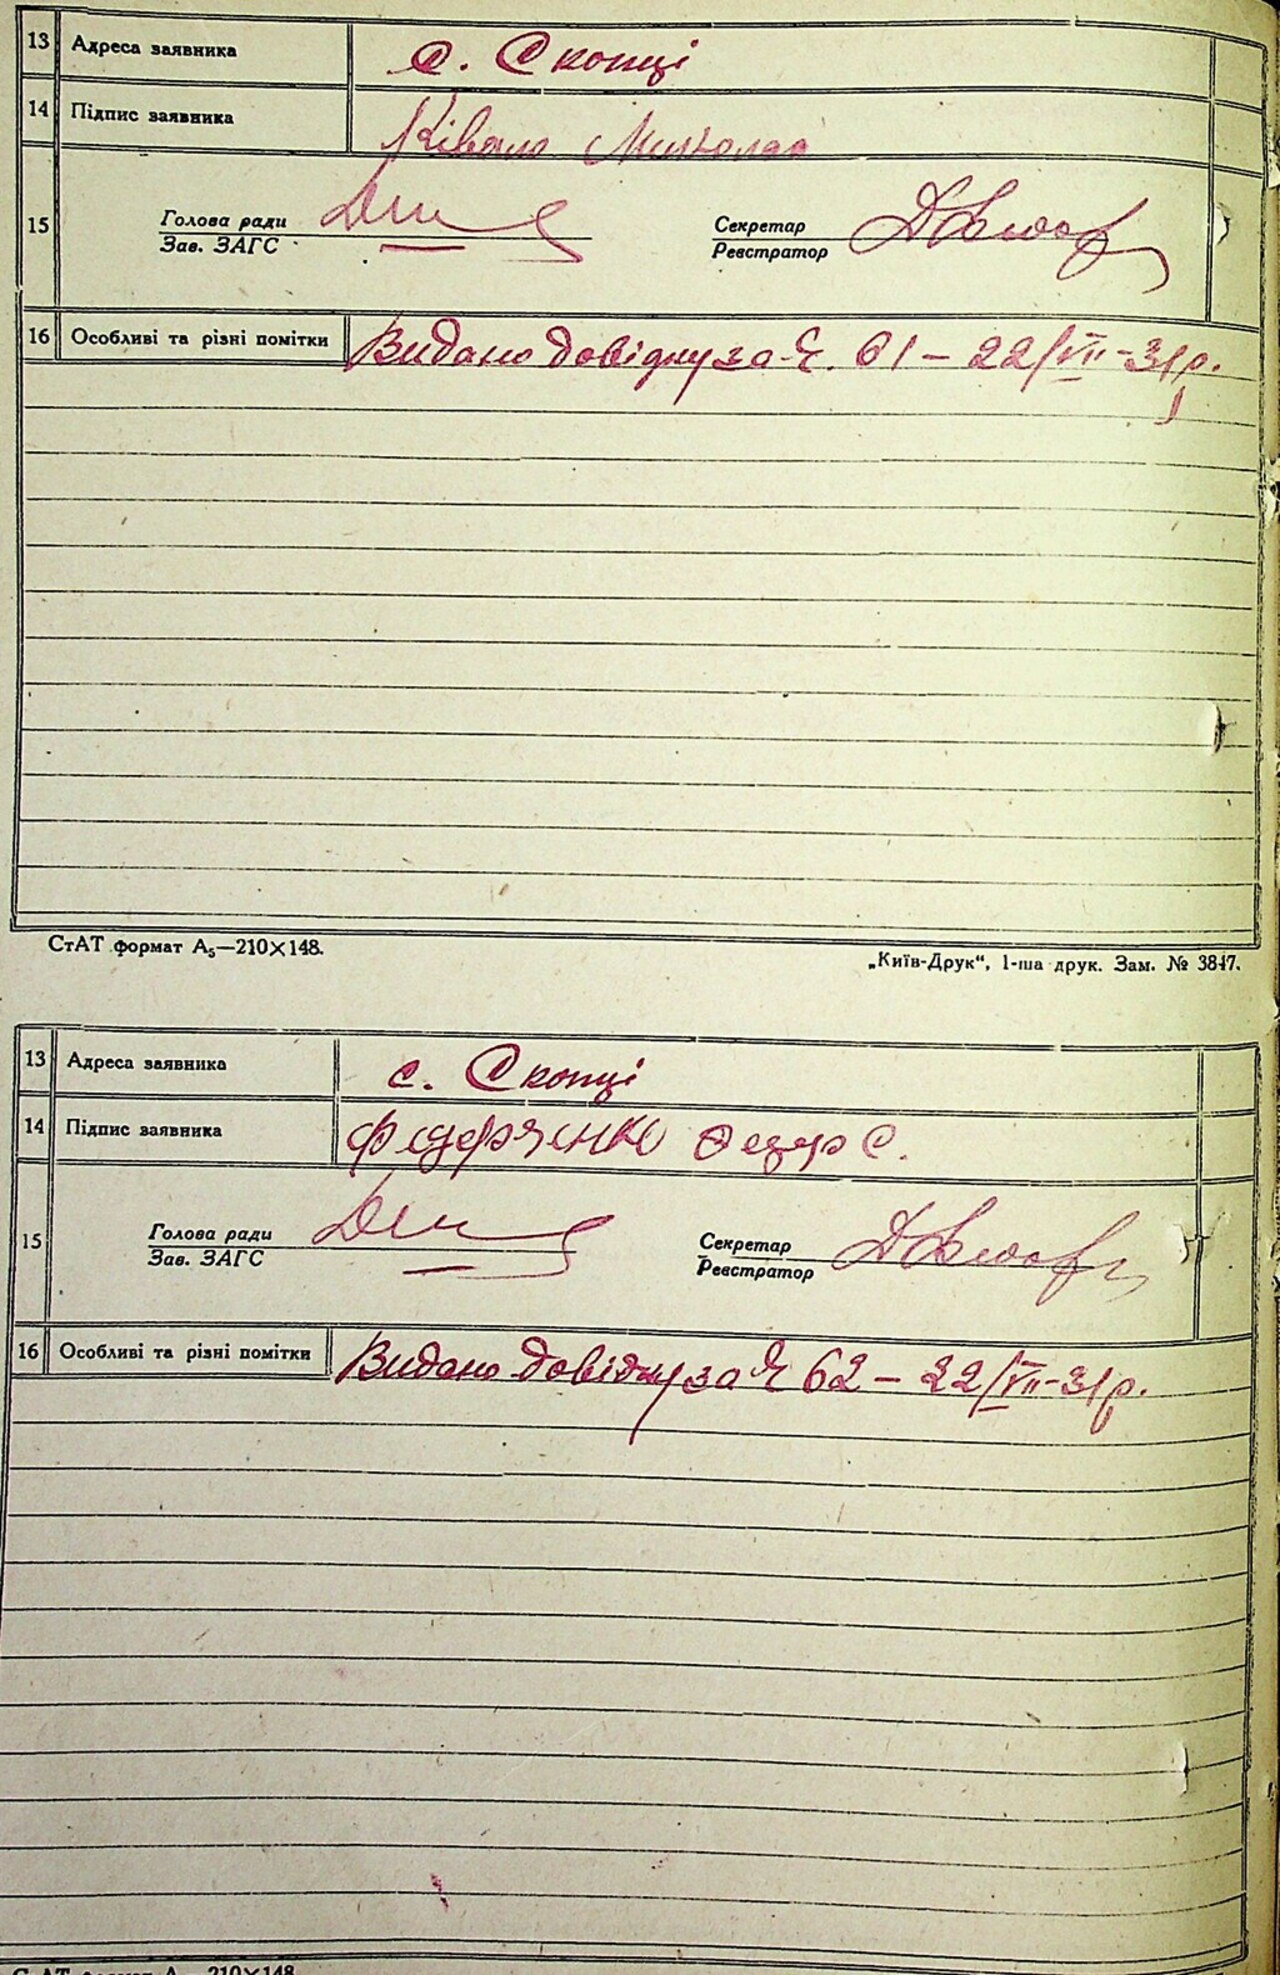 13 Адреса заявника с. Скопці
14 Підпис заявника Ківало Микола
15 Голова ради Секретар
Зав. ЗАГС Реєстратор
16 Особливі та різні помітки Видано довідку за Ч. 61 – 22/VII-31р.
СтАТ формат А₅—210×148.
„Київ-Друк“, 1-ша друк. Зам. № 3847.
13 Адреса заявника с. Скопці
14 Підпис заявника Федорченко Федір С.
15 Голова ради Секретар
Зав. ЗАГС Реєстратор
16 Особливі та різні помітки Видано довідку за Ч 62 – 22/VII-31р.
210×148